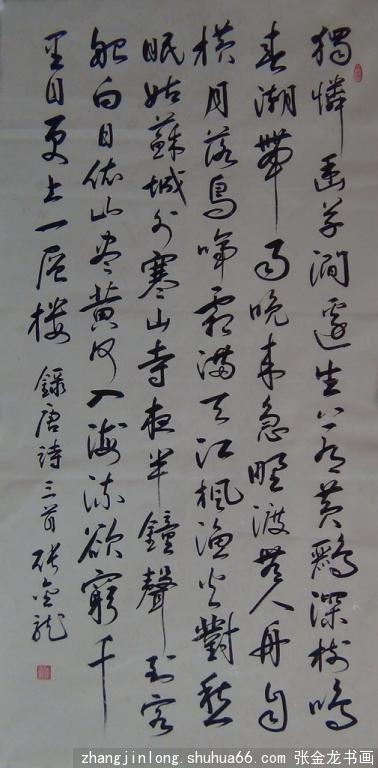 獨憐幽草澗邊生上有黄鸝深樹鳴
春潮帶雨晚来急野渡無人舟自
横月落烏啼霜滿天江楓漁火對愁
眠姑蘇城外寒山寺夜半鐘聲到客
船白日依山尽黄河入海流欲窮千
里目更上一层楼 錄唐詩三首 張金龍
zhangjinlong.shuhua66.com 张金龙书画